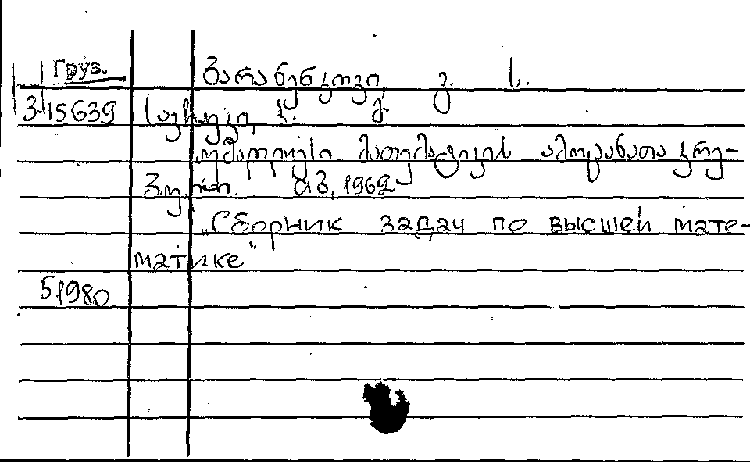 Груз.
ბარანენკოვი გ. ს.
3/15639
უმაღლესი მათემატიკის ამოცანათა კრე-
ბული. თბ, 1962
„Сборник задач по высшей мате-
матике“
51980